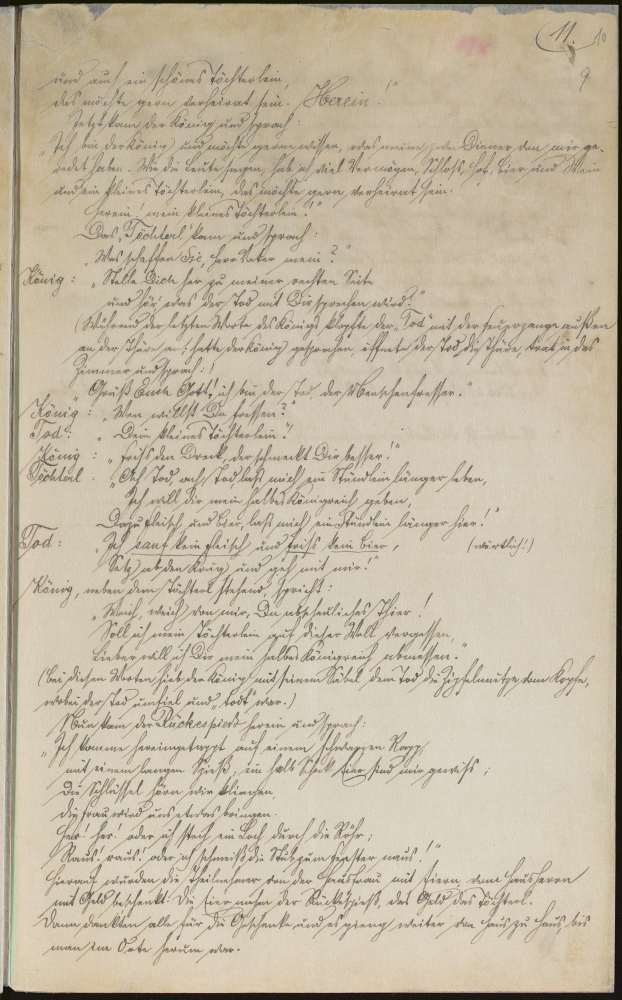 11.
10
9
und auch ein schönes Töchterlein,
das möchte gern verheirat sein. Herein!"
Jetzt kam der König und sprach:
"Ich bin der König und möchte gerne wissen, was meine Diener von mir ge-
redet haben. Wie die Leute sagen, hab ich viel Vermögen, Schloß, Hof, Bier und Wein
und ein kleines Töchterlein, das möchte gern verheirat sein.
Herein! mein kleines Töchterlein!"
Das "Töchterl" kam und sprach:
"Was schaffen Sie, Herr Vater mein?"
König: "Stelle Dich her zu meiner rechten Seite
und hör, was der Tod mit Dir sprechen wird?"
(Während der letzten Worte des Königs klopfte der "Tod" mit der Feuerzange außen
an der Thüre an; hatte der König gesprochen, öffnete der Tod die Thüre, trat in das
Zimmer und sprach:)
"Grüß Euch Gott, ich bin der Tod, der Menschenfresser."
König: "Wen willst Du fressen?"
Tod: "Dein kleines Töchterlein!"
König: "Friß den Dreck, der schmeckt Dir besser!"
Töchterl: "Ach Tod, ach Tod, laß mich ein Stündlein länger leben,
Ich will dir mein halbes Königreich geben,
Dazu Fleisch und Bier, laß mich ein Stündlein länger hier!"
Tod: "Ich sauf kein Fleisch und friß kein Bier, (wörtlich!)
Setz ab den Krug und geh mit mir!"
König, neben dem Töchterl stehend, spricht:
"Weich, weich von mir, Du abscheuliches Thier!
Soll ich mein Töchterlein auf dieser Welt vergessen,
Lieber will ich Dir mein halbes Königreich abmessen."
(Bei diesen Worten hieb der König mit seinem Säbel dem Tod die Zipfelmütze vom Kopfe,
wobei der Tod umfiel und "todt" war.)
Nun kam der Ruckespieß herein und sprach:
"Ich komme hereingetappt auf einem schwarzen Rapp,
mit einem langen Spieß; ein halb Schock Eier sind mir gewiß;
Die Schlüssel hören wir klingen,
die Frau wird uns etwas bringen.
Her! her! oder ich stech ein Loch durch die Röhr;
Raus! raus! oder ich schmeiß die Stub zum Fenster naus!"
Hierauf wurden die Theilnehmer von der Hausfrau mit Eiern, vom Hausherrn
mit Geld beschenkt. Die Eier nahm der Ruckespieß, das Geld das Töchterl.
Dann dankten alle für die Geschenke und es gieng weiter von Haus zu Haus, bis
man im Orte herum war.